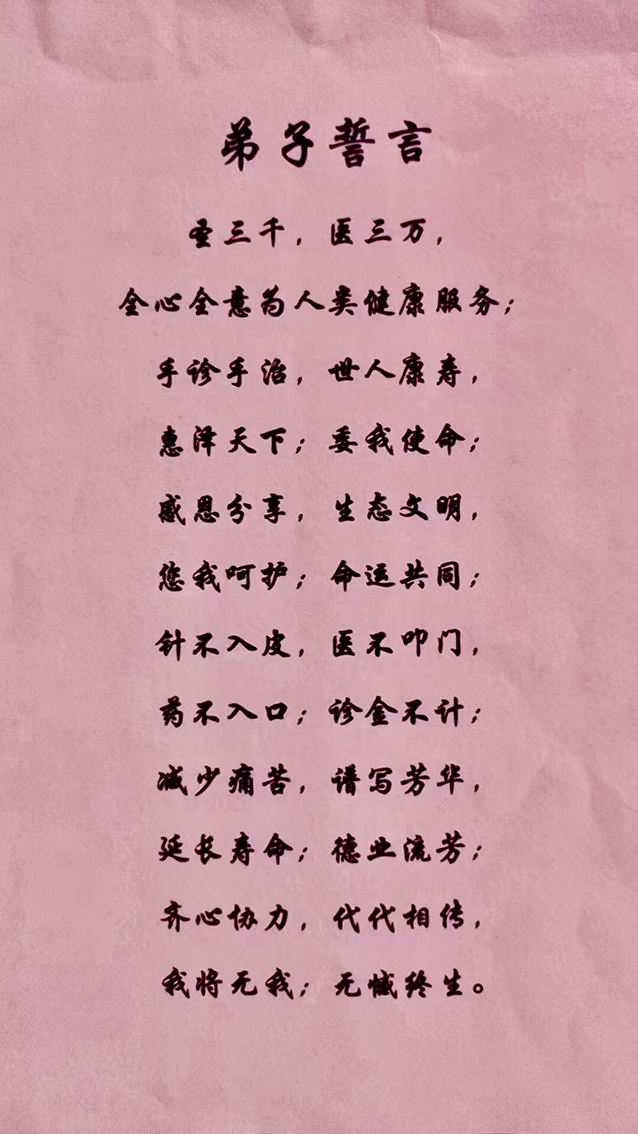 弟子誓言
圣三千，医三万，
全心全意为人类健康服务；
手诊手治，世人康寿，
惠泽天下；委我使命；
感恩分享，生态文明，
您我呵护；命运共同；
针不入皮，医不叩门，
药不入口；诊金不计；
减少痛苦，谱写芳华，
延长寿命；德业流芳；
齐心协力，代代相传，
我将无我；无憾终生。